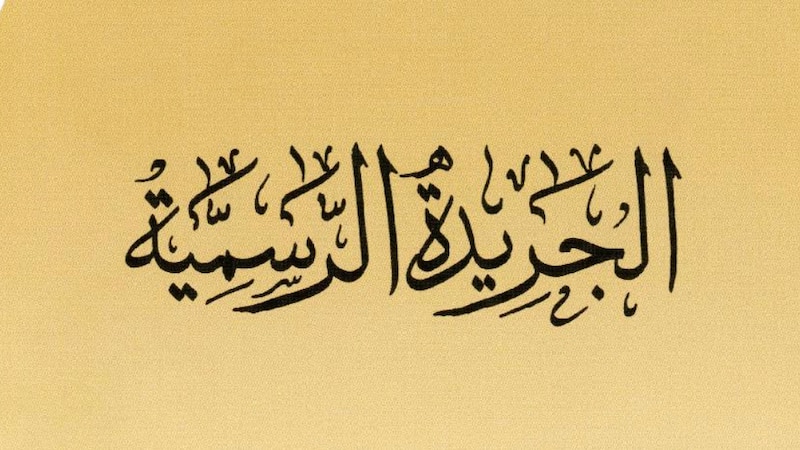 الجريدةُ الرّسميّةُ